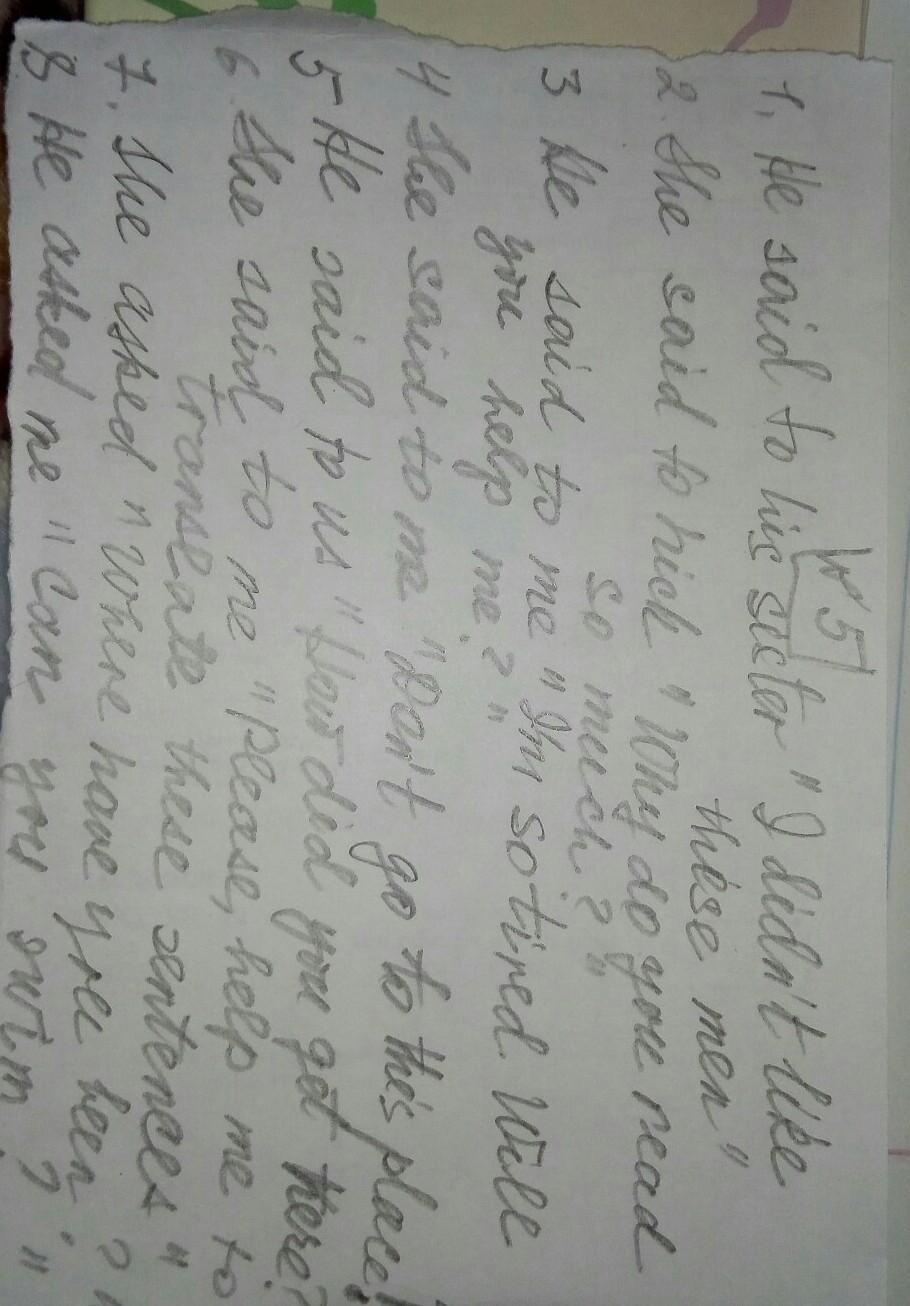 № 5
1. He said to his sister "I didn't like
these men"
2. She said to hick "Why do you read
so much?"
3 He said to me "I'm so tired. Will
you help me?"
4 She said to me "Don't go to this place!
5- He said to us "How did you get there?
6 She said to me "Please, help me to
translate these sentences"
7. She asked "Where have you been?"
8. He asked me "Can you swim?"